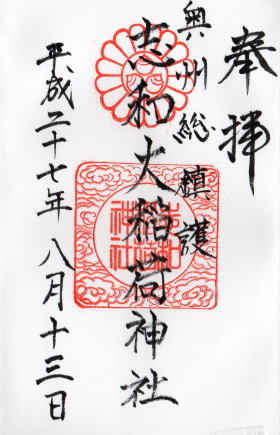 奉拝
奥州総鎮護
志和大稲荷神社
平成二十七年八月十三日